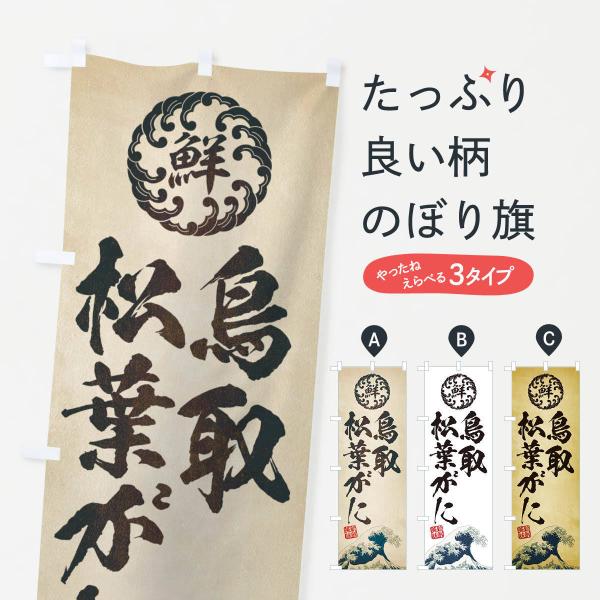 鮮
鳥取
松葉がに
たっぷり
良い柄
のぼり旗
やったね
えらべる
3タイプ
A
B
C
鮮
鳥取
松葉がに
鮮
鳥取
松葉がに
鮮
鳥取
松葉がに